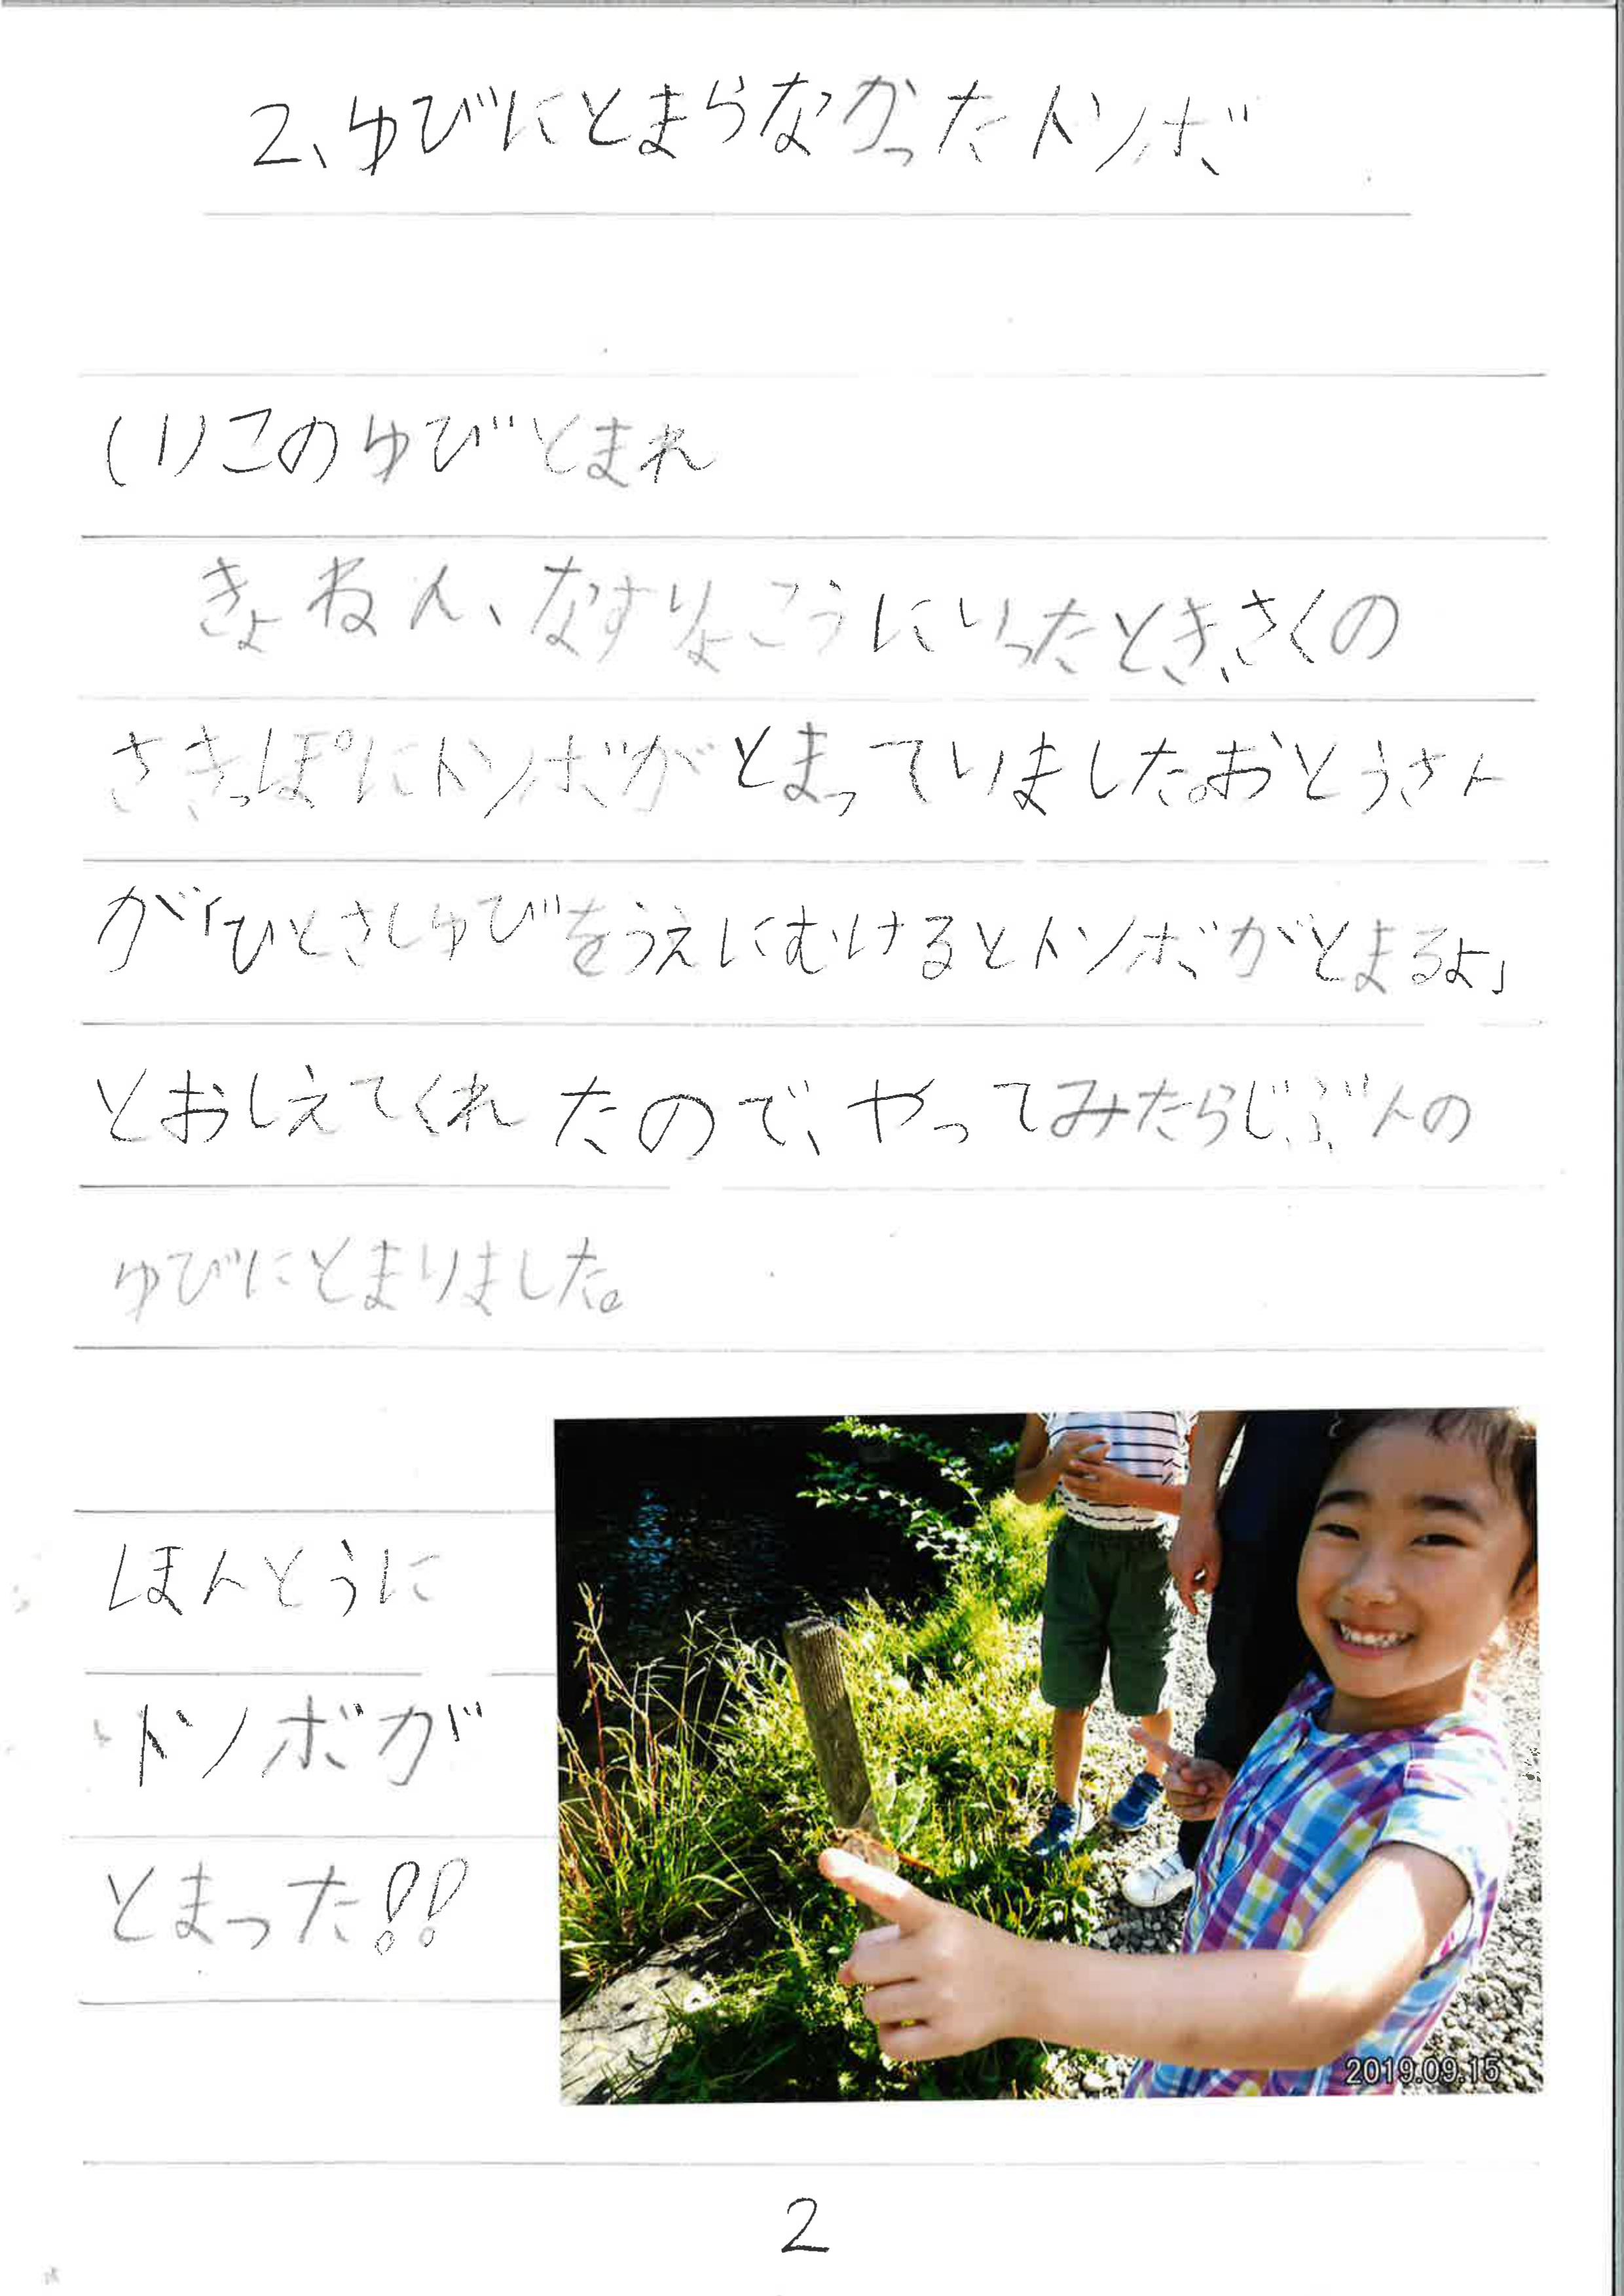 2、ゆびにとまらなかったトンボ
(1)このゆびとまれ
きょねん、なすりょこうにいったとき、さくの
さきっぽにトンボがとまっていました。おとうさん
が「ひとさしゆびをうえにむけるとトンボがとまるよ」
とおしえてくれたので、やってみたらじぶんの
ゆびにとまりました。
ほんとうに
トンボが
とまった!!
2019.09.15
2